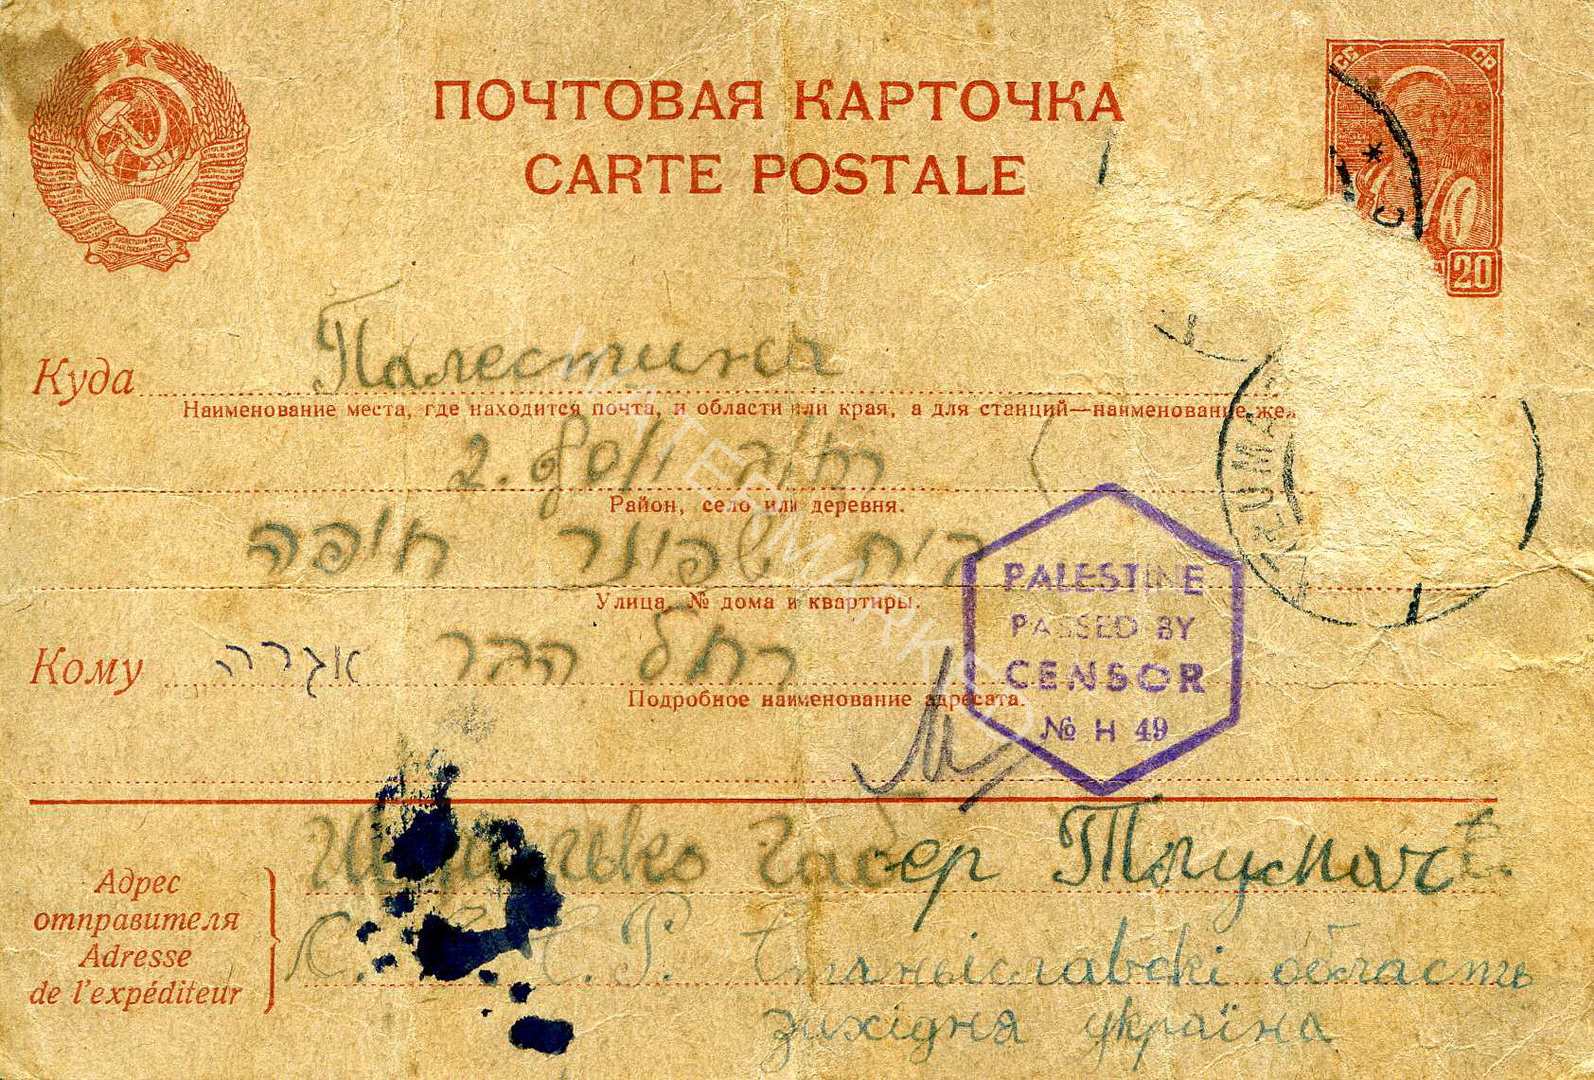 СС СР
ПОЧТОВАЯ КАРТОЧКА
CARTE POSTALE
20
Куда Палестина
Наименование места, где находится почта, и области или края, а для станций—наименование
רחוב 2.
Район, село или деревня.
בית שפינר חיפה
Улица, № дома и квартиры.
Кому רחל הבר אגרה
Подробное наименование адресата.
PALESTINE
PASSED BY
CENSOR
№ H 49
WATERMARK
Адрес
отправителя
Adresse
de l'expéditeur
Габер Тлумач
С.Р. Станыславскі область
західня украïна